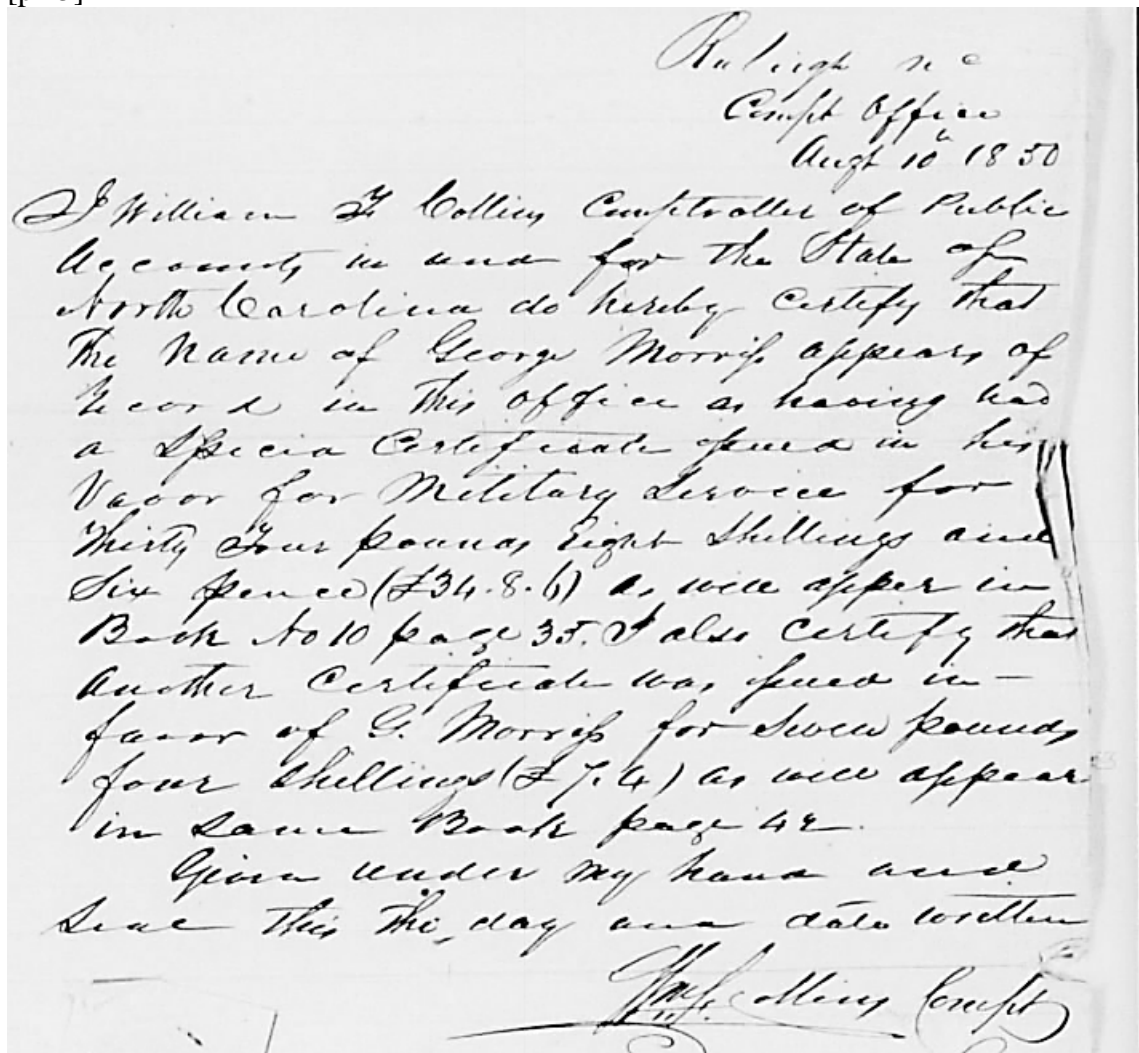 Raleigh N C
Compt Office
Augt 10th 1850
I William F Collins Comptroller of Public
Accounts in and for the State of
North Carolina do hereby certify that
The Name of George Morriss appears of
Record in this office as having had
a Specia Certificate issued in his
Vavor for Mititary Service for
Thirty Four pounds Eight Shillings and
Six pence (£34.8.6) as will apper in
Book No 10 page 35. I also certify that
another Certificate was issued in –
favor of G. Morriss for Seven pounds
four Shillings (£7.4) as will appear
in Same Book page 42.
Given under my hand and
Seal this the day and date written
Wm F. Collins Compt